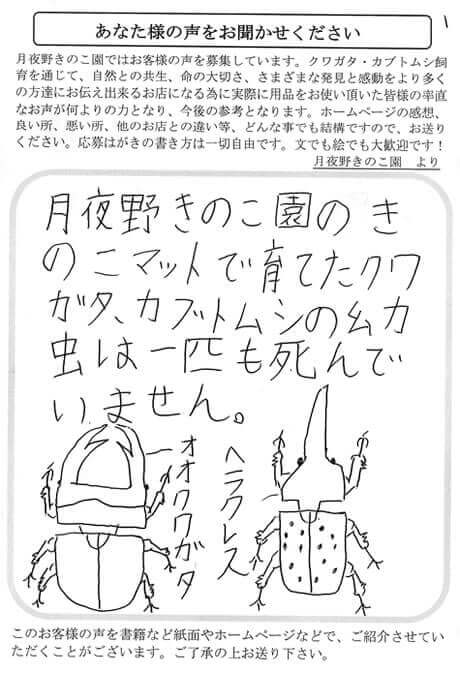 あなた様の声をお聞かせください
月夜野きのこ園ではお客様の声を募集しています。クワガタ・カブトムシ飼
育を通じて、自然との共生、命の大切さ、さまざまな発見と感動をより多く
の方達にお伝え出来るお店になる為に実際に用品をお使い頂いた皆様の率直
なお声が何よりの力となり、今後の参考となります。ホームページの感想、
良い所、悪い所、他のお店との違い等、どんな事でも結構ですので、お送り
ください。応募はがきの書き方は一切自由です。文でも絵でも大歓迎です！
月夜野きのこ園　より
月夜野きのこ園のき
のこマットで育てたクワ
ガタ、カブトムシの幼
虫は一匹も死んで
いません。
オオクワガタ
ヘラクレス
このお客様の声を書籍など紙面やホームページなどで、ご紹介させてい
ただくことがございます。ご了承の上お送り下さい。